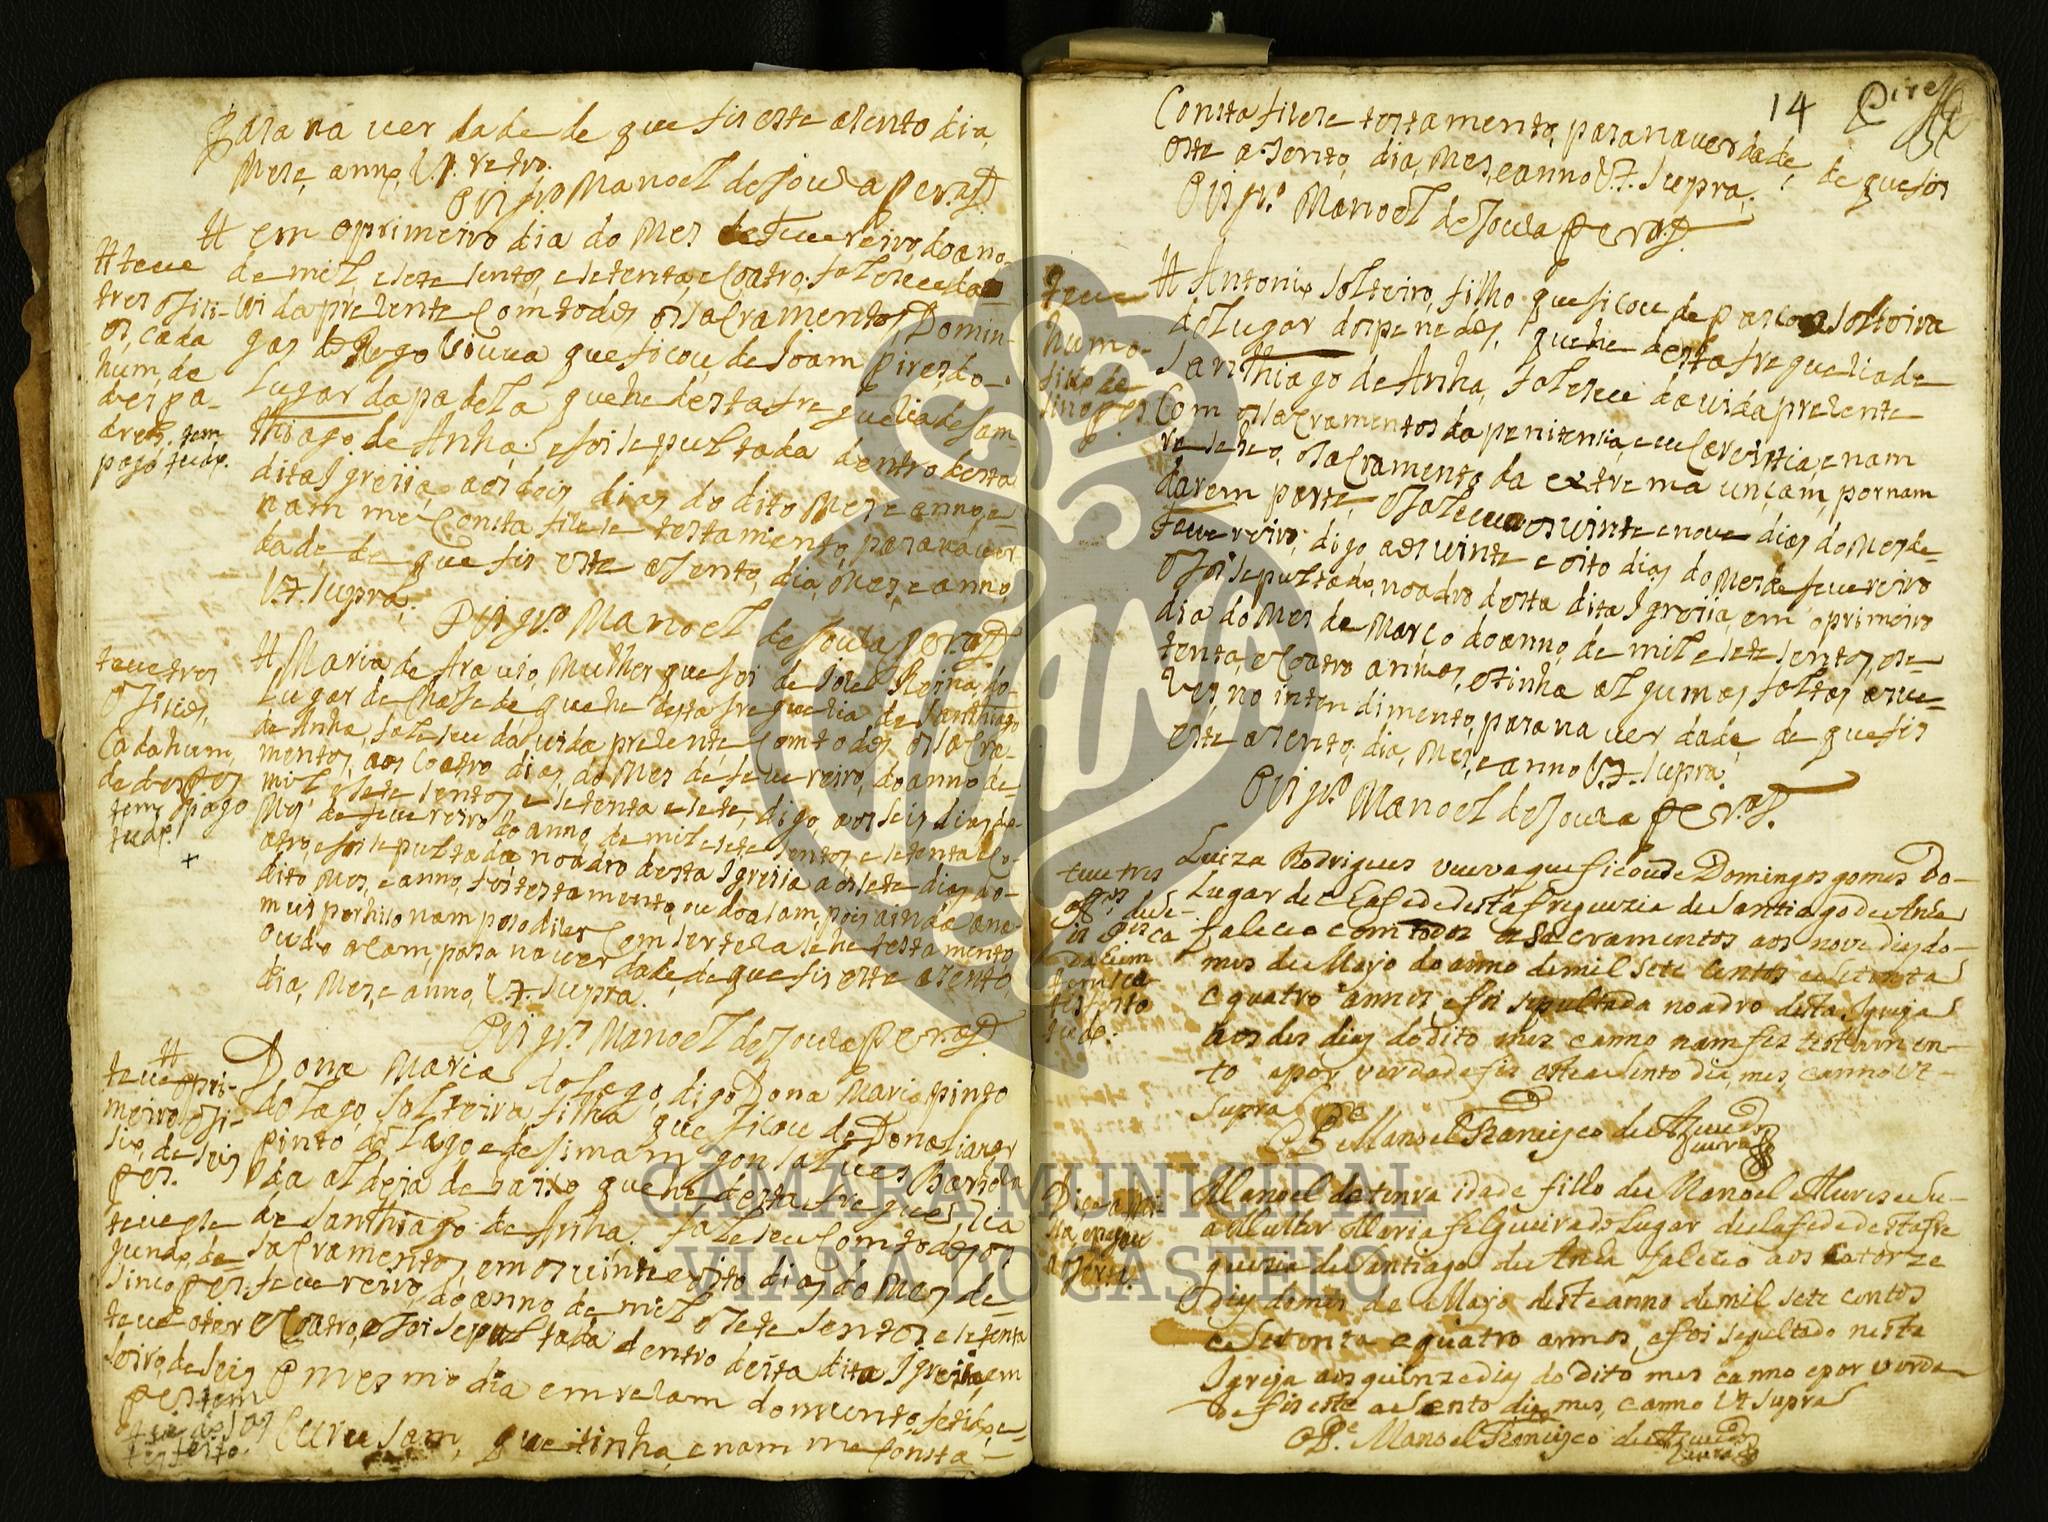 para na verdade de que fis este asento dia,
Mes e anno, V.t. retro.
O Vigr.o Manoel de Souza
Em o primeiro dia do Mes de Fevereiro, do ano
de mil, e sete sentos, e setenta, e Coatro, faleseu da
vida prezente Com todos os sacramentos, Domin-
gas do Rego Viuva que ficou, de Joam Pires do
Lugar da padela que he desta freguezia de sam-
thiago de Anha, e foi sepultada dentro desta
dita Igreija, aos dois dias do dito Mes e anno, e
nam me Consta fizese testamento, para na ver
dade de que fis este asento, dia, Mes, e anno,
V.t. supra.
O Vigr.o Manoel de Souza
teve
tres ofisi-
os, cada
hum, de
des pa-
dres, tem
pago tudo.
Maria de Araujo, Mulher que foi de Joze
Lugar de Chafede, que he desta freguezia, de Santhiago
de Anha, faleseu da vida prezente Com todos os sacra-
mentos, aos Coatro dias, do Mes de fevereiro, do anno de
mil, e sete sentos, e setenta e sete, digo, aos seis dias do
Mes de fevereiro do anno, de mil e sete sentos, e setenta e Co-
atro, e foi sepultada no adro desta Igreija aos sete dias do
dito Mes, e anno, fes testamento, ou doasam, pois ainda ana-
mus por hiso nam poso dizer Com serteza se he testamento,
ou doasam, para na verdade, de que fis este asento,
dia, Mes, e anno, V.t. supra.
O Vigr.o Manoel de Souza
teve tres
ofisios,
Cada hum,
de des
tem pago
tudo.
+
Dona Maria do Lago, digo Dona Maria pinto
do Lago, solteira filha que ficou de Dona
pinto do Lago e de simam gonsalves
da aldeia de baixo que he desta freguezia
de Santhiago de Anha. faleseu Com todos os
sacramentos, em os vinte e oito dias do Mes de
fevereiro, do anno, de mil e sete sentos, e setenta
e Coatro, e foi sepultada dentro desta dita Igreija, em
o mesmo dia em
que tinha, e nam me Consta-
teve o pri-
meiro ofi-
sio, de seis
teve o se-
gundo, de
sinco
teve o ter
seiro, de seis
tem
feito.
14 Pires
Consta fizese testamento, para na verdade, de que fis
este asento, dia, Mes, e anno V.t. supra.
O Vigr.o Manoel de Souza
Antonio solteiro, filho que ficou de pascoa solteira
do Lugar dos penedos, que he desta freguezia de
Santhiago de Anha, faleseu da vida prezente
Com os sacramentos da penitensia, e eucarestia, e nam
reseBeo, o sacramento da extrema unçam, por nam
darem parte, e faleseu aos vinte e nove dias do Mes de
fevereiro, digo aos vinte e oito dias do Mes de fevereiro
e foi sepultado, no adro desta dita Igreija, em o primeiro
dia do Mes de Março do anno, de mil e sete sentos, e se-
tenta, e Coatro annos, e tinha algumas faltas as ve-
zes no intendimento, para na verdade, de que fis
este asento, dia, Mes, e anno V.t. supra.
O Vigr.o Manoel de Souza
teve
hum o-
fisio de
Luiza Rodrigues veuva que ficou de Domingos gomes Do-
Lugar de Chafe de desta freguezia de Santiago de Anha
faleceo com todos os sacramentos aos nove dias do
mes de Mayo do anno de mil sete centos e setenta
e quatro annos, e foi sepultada no adro desta Igreija
aos des dias do dito mes e anno nam fes testamen-
to e por verdade fis este asento dia mes, e anno Vt
Supra
O P.e Manoel Francisco de Azevedo
teve tres
Manoel de tenra idade filho de Manoel Alures e su-
a Mulher Maria felgueira do Lugar de chafe de desta fre
guezia de Santiago de Anha faleceo aos catorze
dias do mes de Mayo deste anno de mil sete centos
e setenta e quatro annos, e foi sepultado nesta
Igreja aos quinze dias do dito mes e anno e por verda
de fis este asento dia mes, e anno Vt supra
O P.e Manoel Francisco de Azevedo
CÂMARA MUNICIPAL
VIANA DO CASTELO